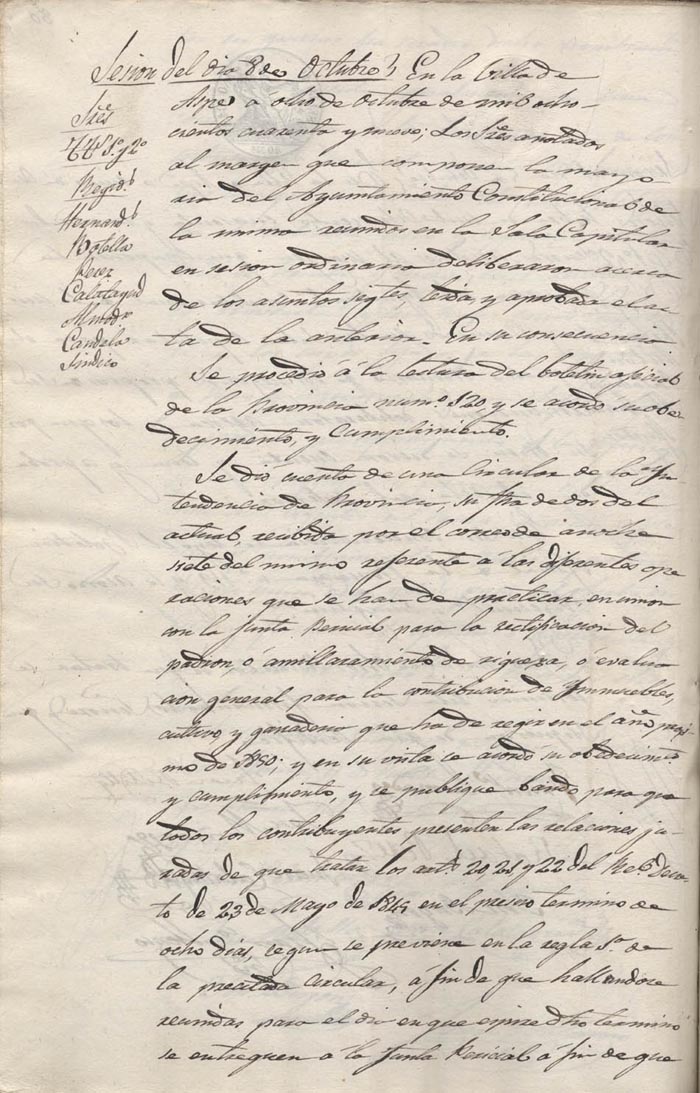 Sesion del dia 8 de Octubre} En la Villa de
Aspe a ocho de Octubre de mil ocho-
cientos cuarenta y nueve; Los Sres anotados
al margen que compone la mayo
ria del Ayuntamiento Constitucional de
la misma reunidos en la Sala Capitular
en sesion ordinaria deliberaron acerca
de los asuntos sigtes, leida, y aprobada el ac
ta de la anterior. En su consecuencia
Sres
Ttes 1º y 2º
Regid.s
Hernand.s
Botella
Perez
Calatayud
Almodr.
Candela
Sindico
Se procedió á la lectura del boletin oficial
de la Provincia num.º 120, y se acordó su obe-
decimiento, y Cumplimiento.
Se dió cuenta de una Circular de la In
tendencia de Provincia, su fha de dos del
actual, recibida por el correo de anoche
siete del mismo referente á las diferentes ope
raciones que se han de practicar, en union
con la Junta Pericial para la rectificacion del
padron ó amillaramiento de riqueza, ó evalua
cion general para la contribucion de Inmuebles,
cultivo y ganaderia que ha de regir en el año proxi
mo de 1850; y en su vista se acordó su obedecim.to
y cumplimiento, y se publique bando para que
todos los contribuyentes presenten las relaciones ju-
radas de que tratar los art.s 20, 21, y 22 del Rl. Decre
to de 23 de Mayo de 1845 en el preciso termino de
ocho dias, segun se previene en la regla 1ª de
la precitada Circular, á fin de que hallandose
reunidas para el dia en que espire dho termino
se entreguen á la Junta Pericial á fin de que